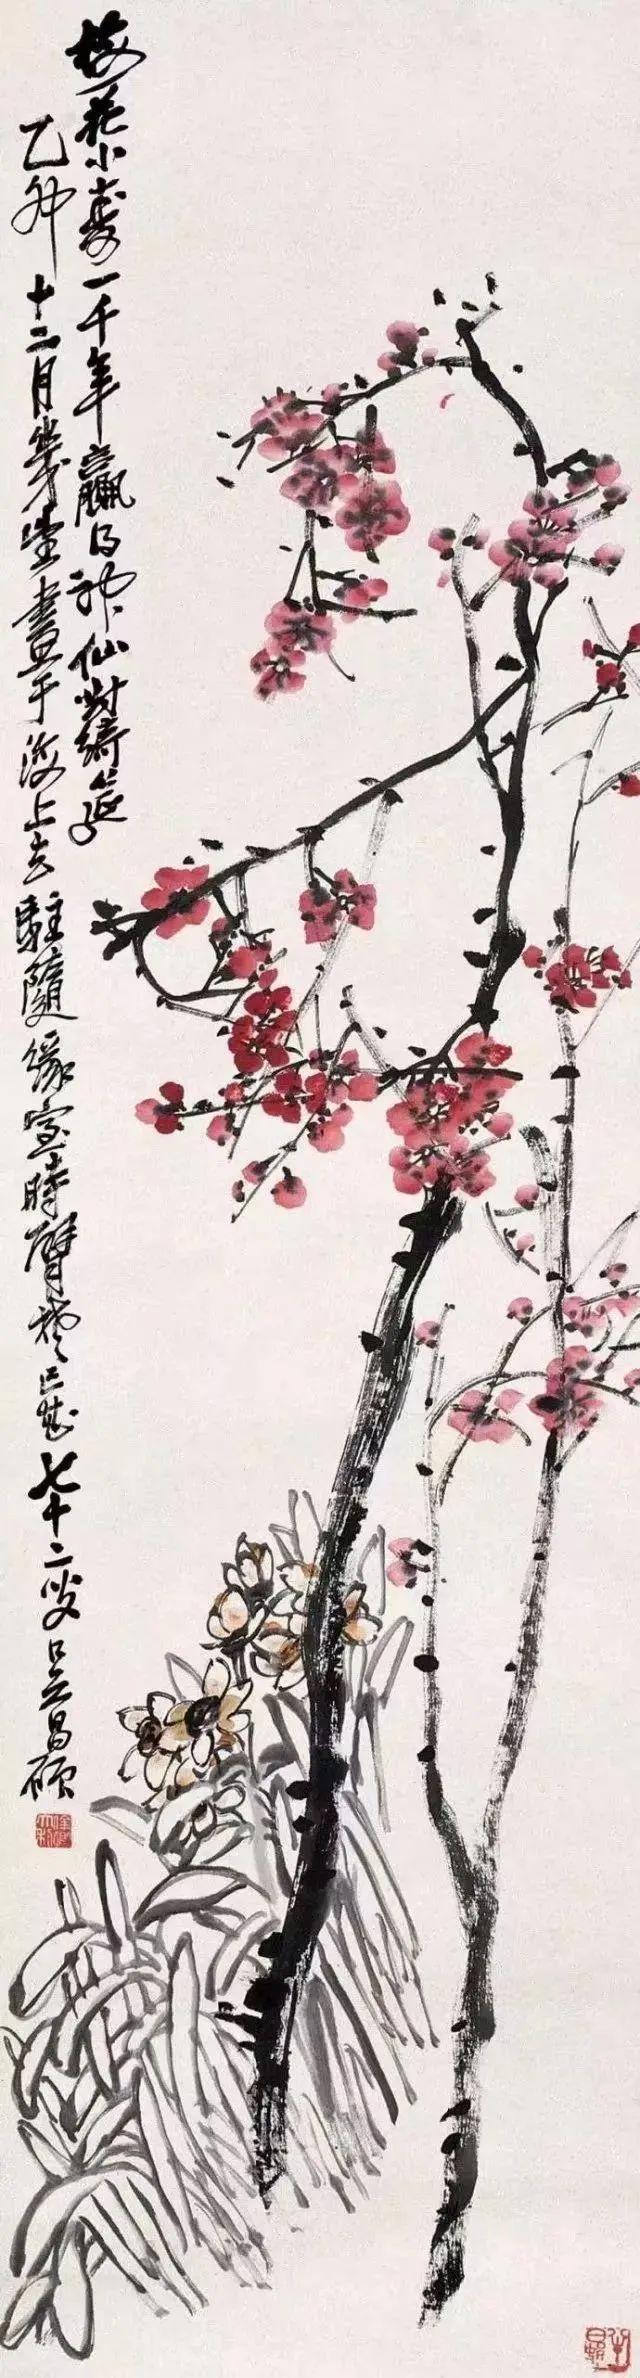 梅花小壽一千年贏得神仙對綺筵
乙卯十二月幾望畫于海上去駐隨緣室時臂七十二叟吳昌碩
半日邨